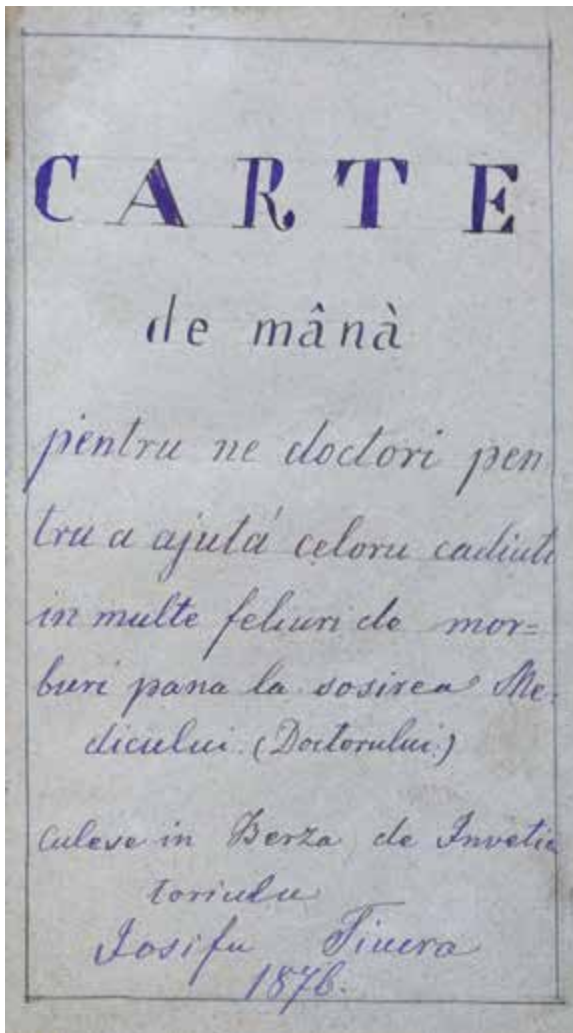 CARTE
de mânà
pentru ne doctori pen
tru a ajutá celoru cadiuti
in multe feliuri de mor=
buri pana la sosirea Me-
dicului. (Doctorului.)
Culese in Berza de Invetia
toriulu
Iosifu
1876.